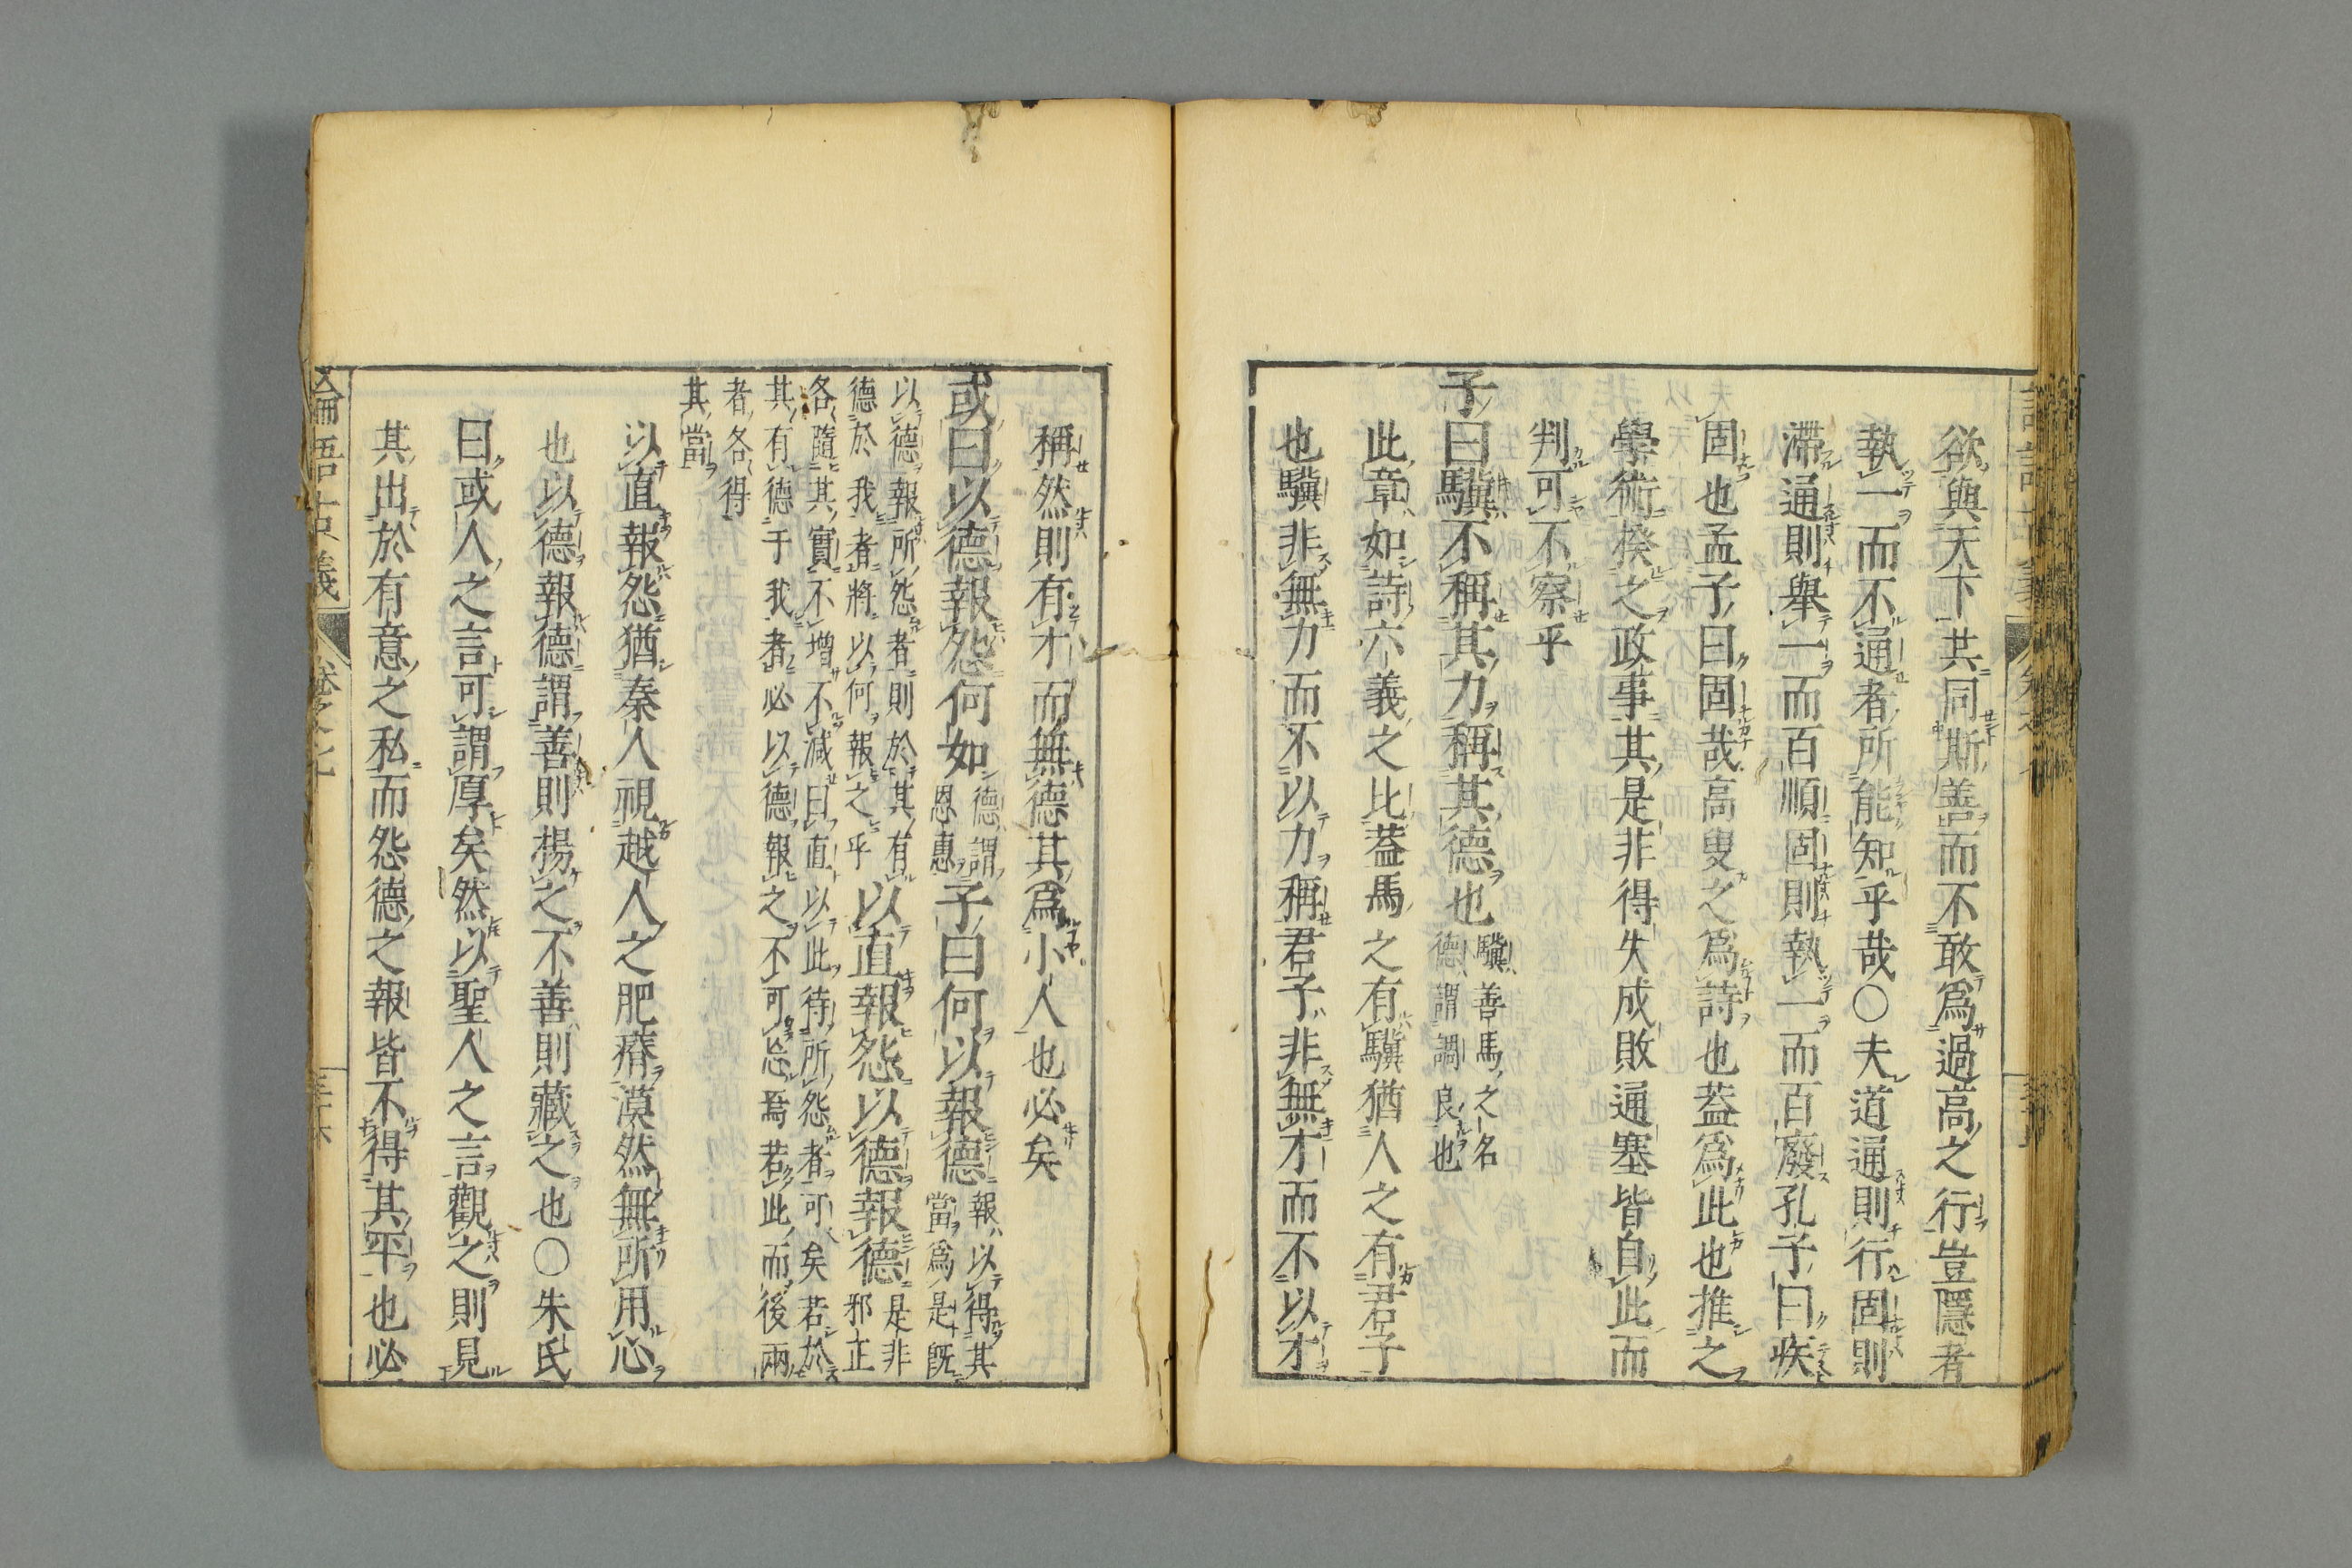 欲與天下共同斯善而不敢爲過高之行豈隱者
執一而不通者所能知乎哉〇夫道通則行固則
滯通則舉一而百順固則執一而百廢孔子曰疾
固也孟子曰固哉高叟之爲詩也蓋爲此也推之
學術揆之政事其是非得失成敗通塞皆自此而
判可不察乎
子曰驥不稱其力稱其德也
驥善馬之名
德謂調良也
此章如詩六義之比蓋馬之有驥猶人之有君子
也驥非無力而不以力稱君子非無才而不以才
稱然則有才而無德其爲小人也必矣
或曰以德報怨何如
德謂
恩惠
子曰何以報德
報以得其
當爲是旣
以德報所怨者則於其有
德於我者將以何報之乎
以直報怨以德報德
是非
邪正
各隨其實不增不減曰直以此待所怨者可矣若於
其有德于我者必以德報之不可忘焉若此而後兩
者各得
其當
以直報怨猶秦人視越人之肥瘠漠然無所用心
也以德報德謂善則揚之不善則藏之也〇朱氏
曰或人之言可謂厚矣然以聖人之言觀之則見
其出於有意之私而怨德之報皆不得其平也必
論語古義
卷之七